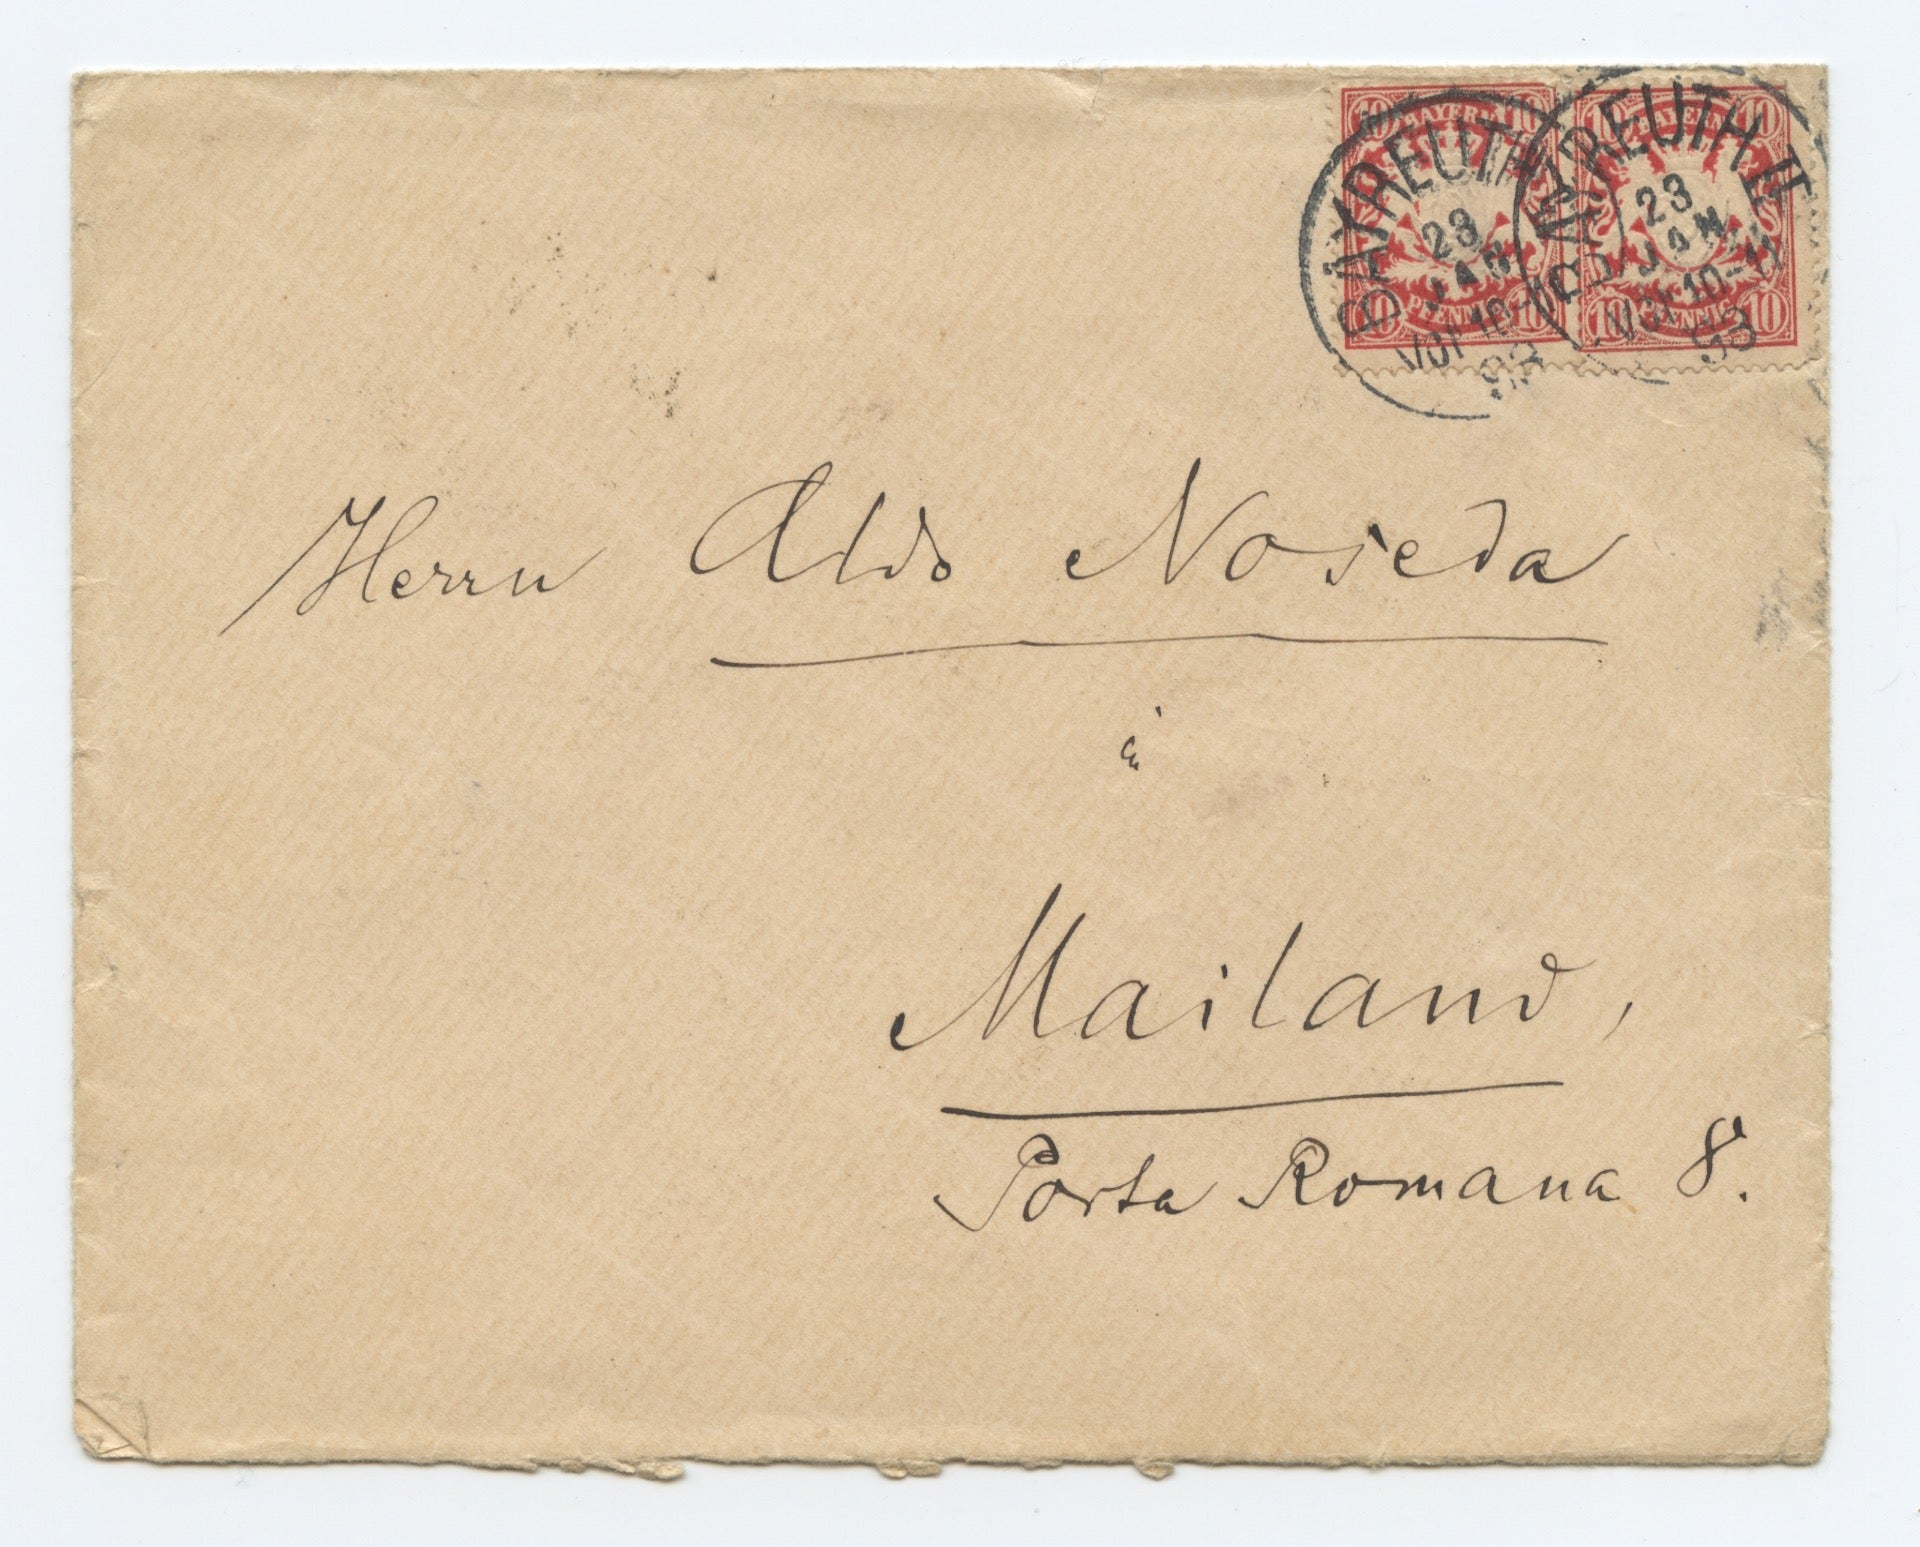 10 BAYERN 10
10 PFENNIG 10
10 BAYERN 10
10 PFENNIG 10
BAYREUTH II
23
JAN
Vor 10-11
93
BAYREUTH II
23
JAN
Vor 10-11
93
Herrn Aldo Noseda
à
Mailand,
Porta Romana 8.